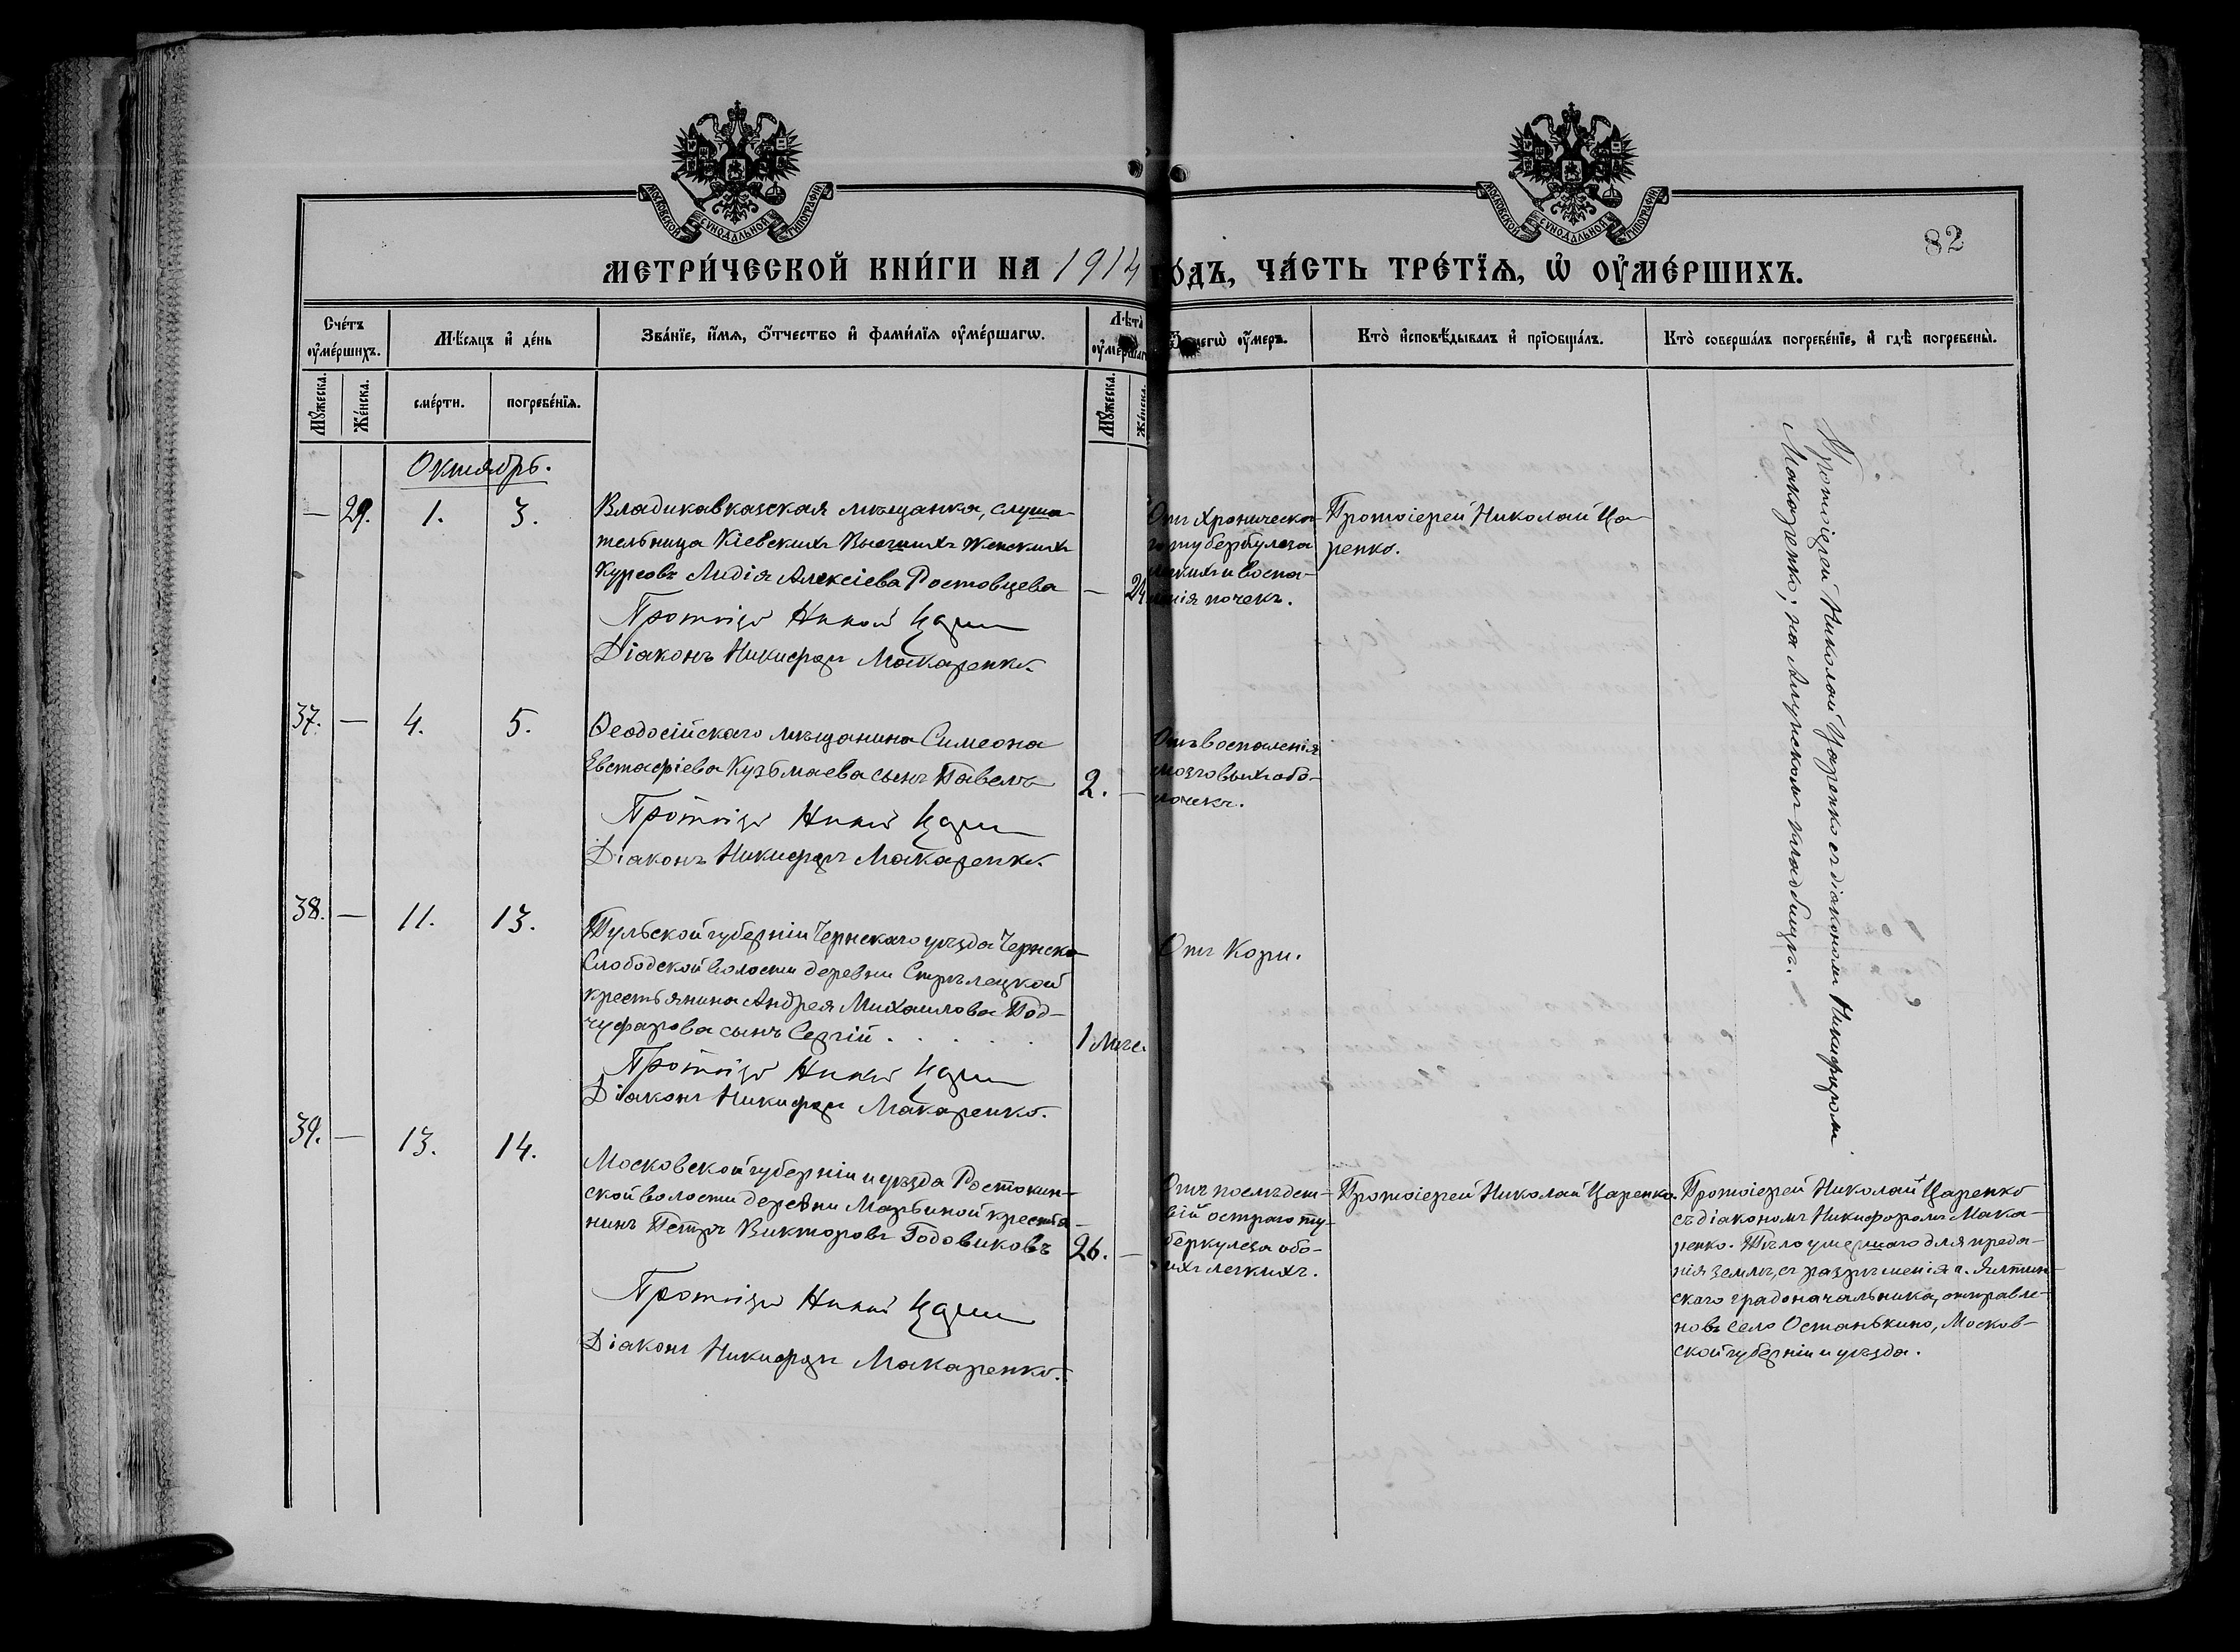 МОСКОВСКОЙ СУНОДАЛЬНОЙ ТИПОГРАФІИ
МОСКОВСКОЙ СУНОДАЛЬНОЙ ТИПОГРАФІИ
82
МЕТРИ́ЧЕСКОЙ КНИ́ГИ НА 1914 ГО́ДЪ, ЧА́СТЬ ТРЕ́ТЇѦ, Ѡ ОУМЕ́РШИХЪ.
Сче́тъ оуме́ршихъ.
Мѣ́сяцъ и де́нь
Зва́нїе, и́мѧ, о́тчество и фами́лїѧ оуме́ршагѡ.
Лѣта оуме́ршагѡ
Ѿ чегѡ оу́меръ.
Кто̀ исповѣ́дывалъ и прїѡбща́лъ.
Кто̀ соверша́лъ погребе́нїе, и гдѣ̀ погребены̀.
Мꙋ́жеска.
Же́нска.
сме́рти.
погребе́нїѧ.
Мꙋ́жеска.
Же́нска.
Октябрь.
— 29. 1. 3.
Владикавказская мѣщанка, слуша-
тельница Кіевскихъ Высшихъ Женскихъ
Курсовъ Лидія Алексіева Ростовцева — 24
Протоіер Никол Царен
Діаконъ Никифоръ Макаренко.
Отъ хроническа-
го туберкулеза
легкихъ и воспа-
ленія почекъ.
Протоіерей Николай Ца-
ренко.
Протоіерей Николай Царенко съ діакономъ Никифоромъ
Макаренко; на Аутскомъ кладбищѣ.
37. — 4. 5.
Ѳеодосійскаго мѣщанина Симеона
Евстафіева Кузьмаева сынъ Павелъ 2. —
Протоіер Никол Царен
Діаконъ Никифоръ Макаренко.
Отъ воспаленія
мозговыхъ обо-
лочекъ.
38. — 11. 13.
Тульской губерніи Чернскаго уѣзда Чернско-
Слободской волости деревни Стрѣлецкой
крестьянина Андрея Михаилова Под-
чуфарова сынъ Сергій . . . . . 1 мѣс.
Протоіер Никол Царен
Діаконъ Никифоръ Макаренко.
Отъ Кори.
39. — 13. 14.
Московской губерніи и уѣзда Ростокин-
ской волости деревни Марьиной крестья-
нинъ Петръ Викторовъ Годовиковъ 26. —
Протоіер Никол Царен
Діаконъ Никифоръ Макаренко.
Отъ послѣдст-
вій остраго ту-
беркулеза обо-
ихъ легкихъ.
Протоіерей Николай Царенко.
Протоіерей Николай Царенко
съ діакономъ Никифоромъ Мака-
ренко. Тѣло умершаго для преда-
нія землѣ, съ разрѣшенія г. Ялтин-
скаго градоначальника, отправле-
но въ село Останькино, Москов-
ской губерніи и уѣзда.